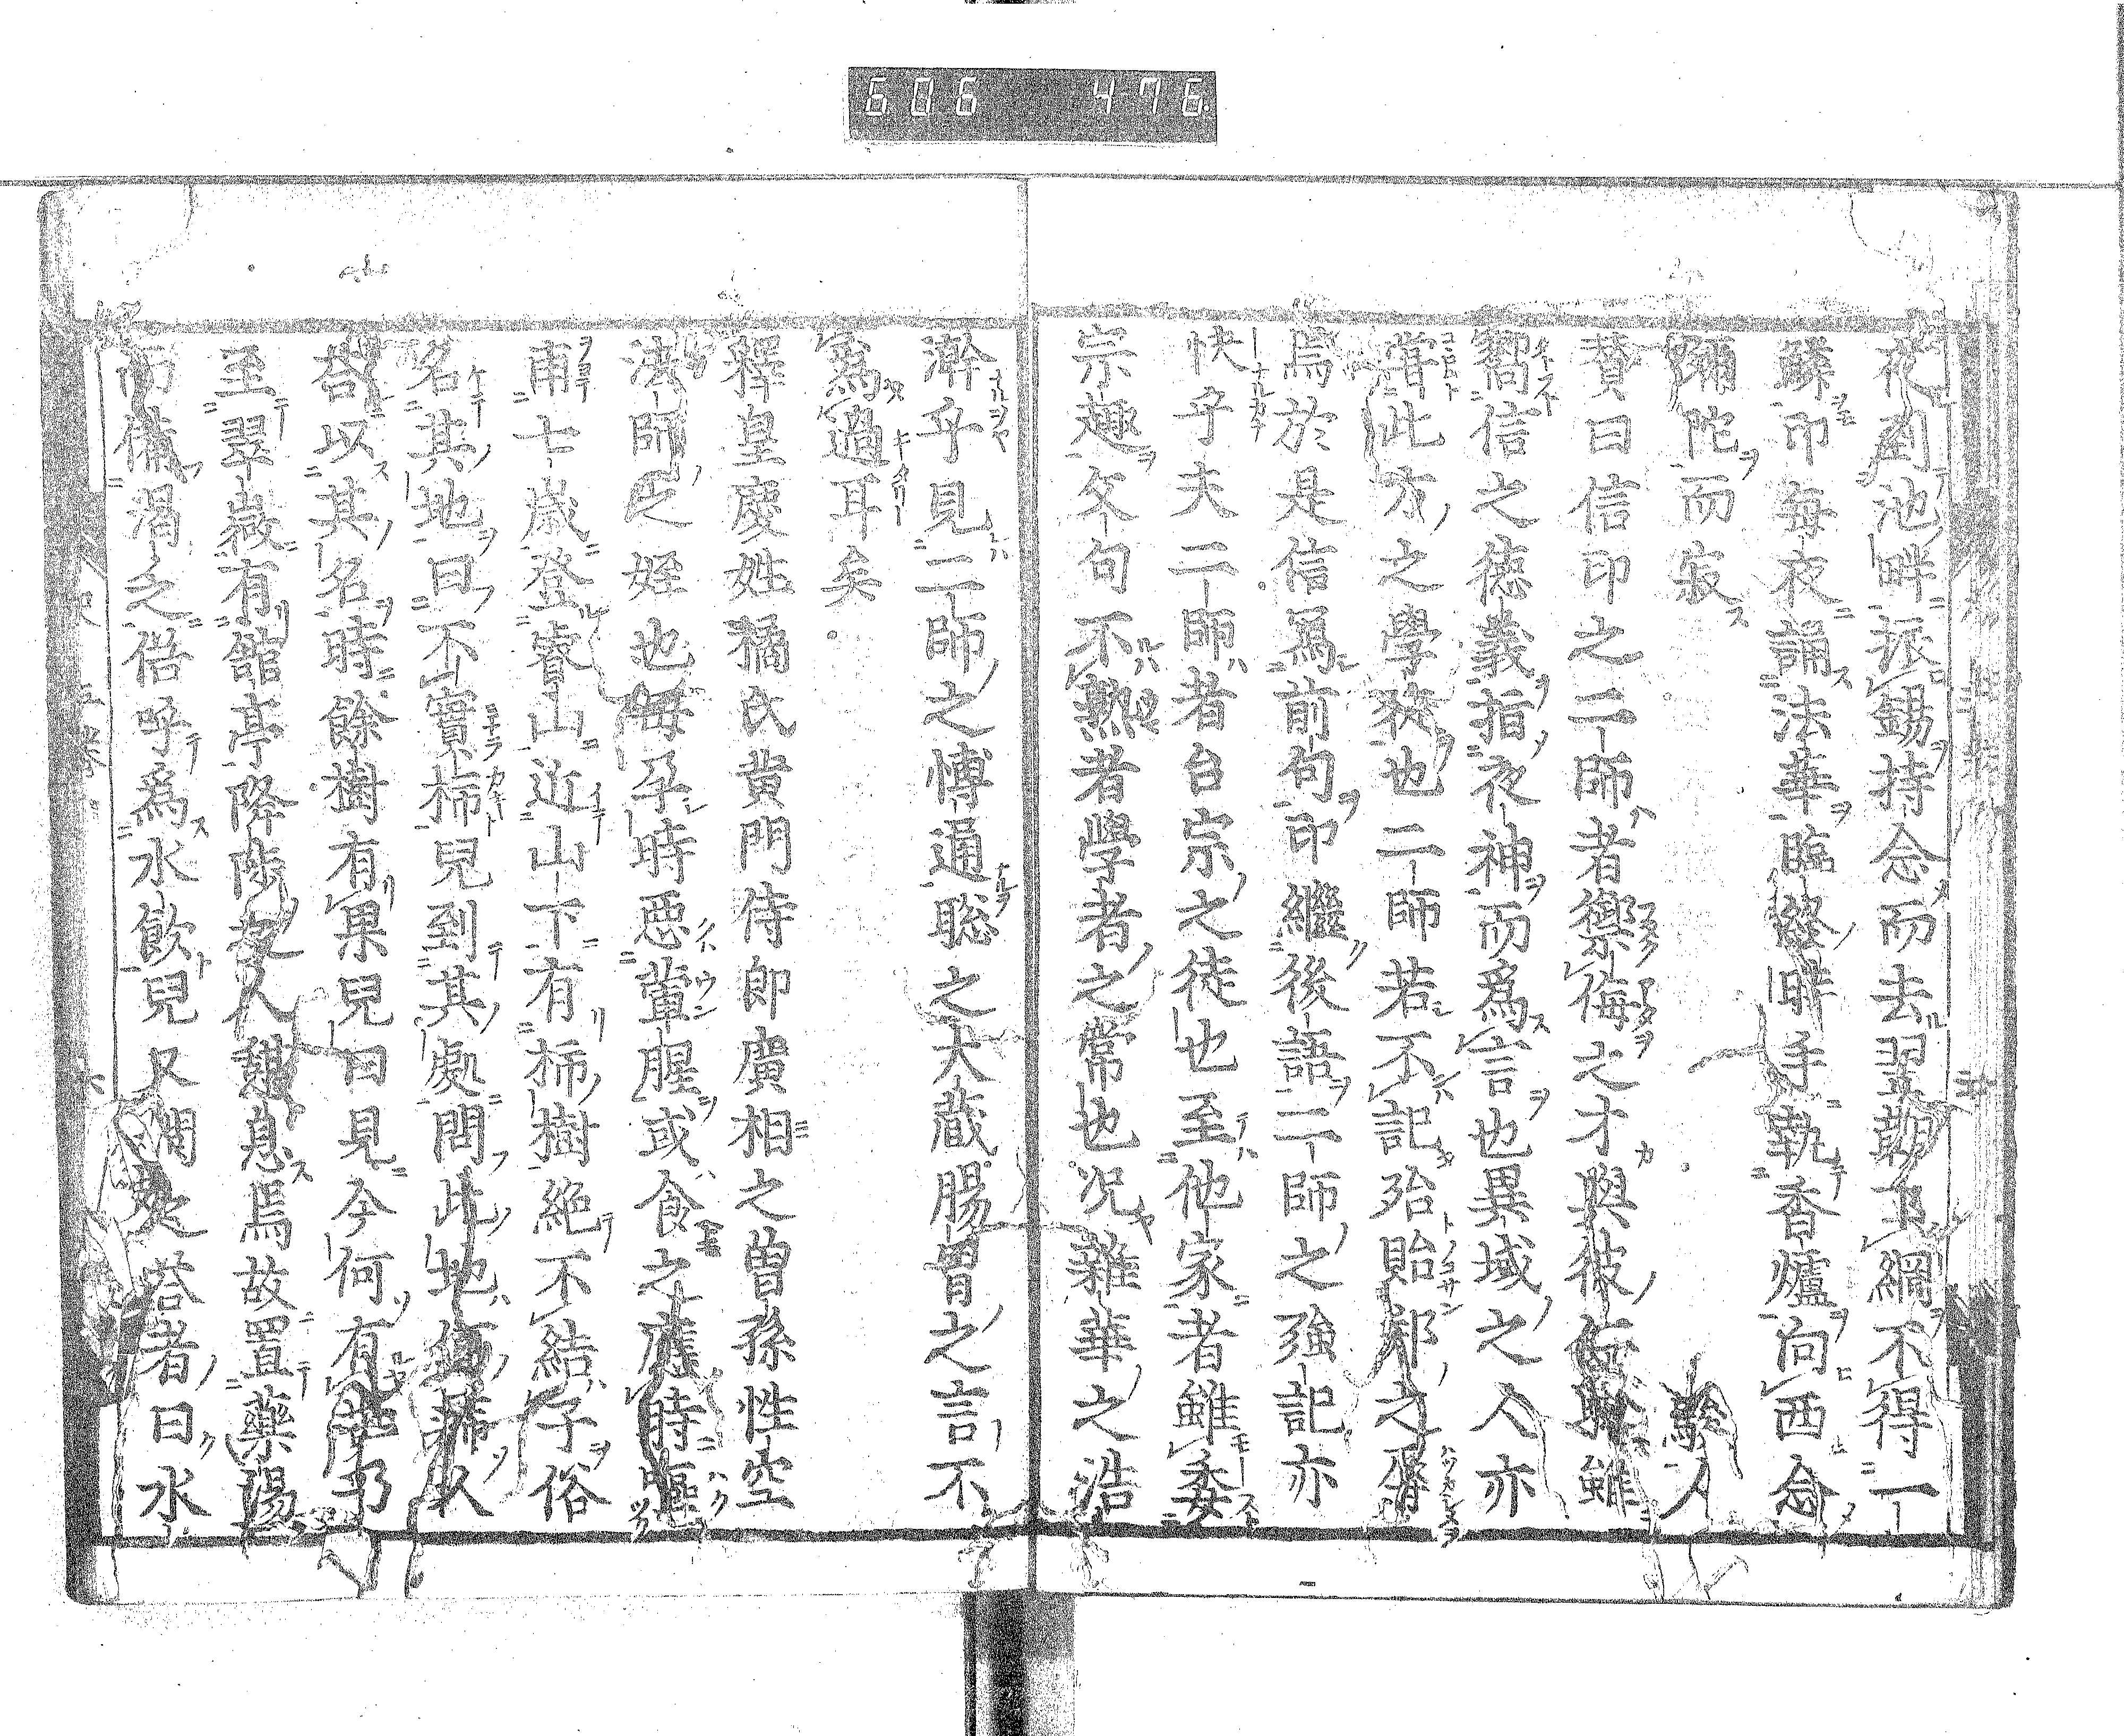 606 476
夜到池畔振錫持念而去翌朝下網不得一
鱗印每夜誦法華臨終時手執香爐向西念
彌陀而寂
贊曰信印之二師者禦侮之才與彼
嚮信之德義指夜神而為言也異域之人亦
當此方之學務也二師若不記殆貽鄰之屑
焉於是信爲前句印繼後語二師之強記亦
快乎夫二師者台宗之徒也至他家者雖委
宗趣文句不熟者學者之常也況雜華之浩
瀚乎見二師之博通聡之大藏腸胃之言不
爲過耳矣
釋皇慶姓橘氏黄門侍郎廣相之曽孫性空
法師之姪也母孕時惡葷腥或食之應時嘔
甫七歳登睿山近山下有柿樹絶不結子俗
名其地曰不實柿兒到其處問此地
荅以其名時餘樹有果兒曰見今何有
至翠嶽有舘亭降陟人息焉故置藥湯
而備渇之俗呼爲水飲兒又問荅者曰水